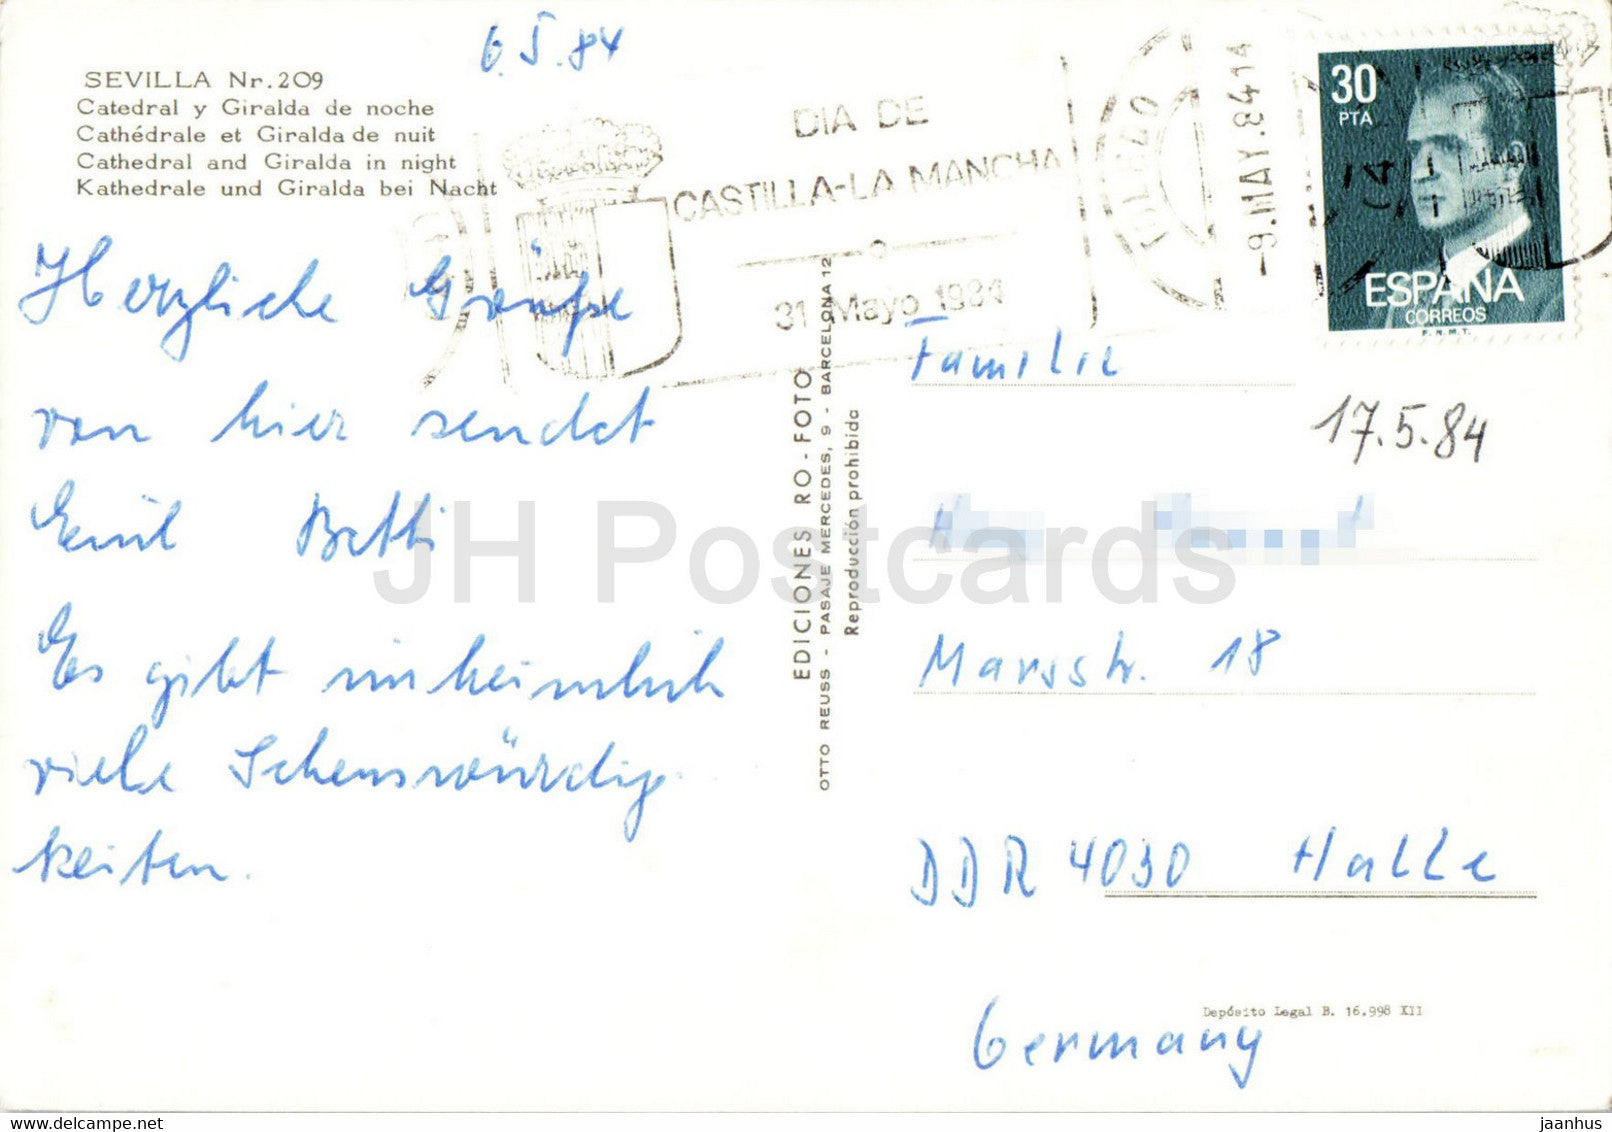 6.5.84
SEVILLA Nr. 209
Catedral y Giralda de noche
Cathédrale et Giralda de nuit
Cathedral and Giralda in night
Kathedrale und Giralda bei Nacht
DIA DE
CASTILLA-LA MANCHA
31 Mayo 1984
-9.MAY.84 14
30
PTA
ESPAÑA
CORREOS
F.N.M.T.
Herzliche Grüße
von hier sendet
Emil Betti
Es gibt unheimlich
viele Sehenswürdig-
keiten.
EDICIONES RO-FOTO
OTTO REUSS - PASAJE MERCEDES, 9 - BARCELONA 12
Reproducción prohibida
Familie
17.5.84
Marsstr. 18
DDR 4030 Halle
Germany
Depósito Legal B. 16.998 XII
JH Postcards
www.delcampe.net
jaanhus